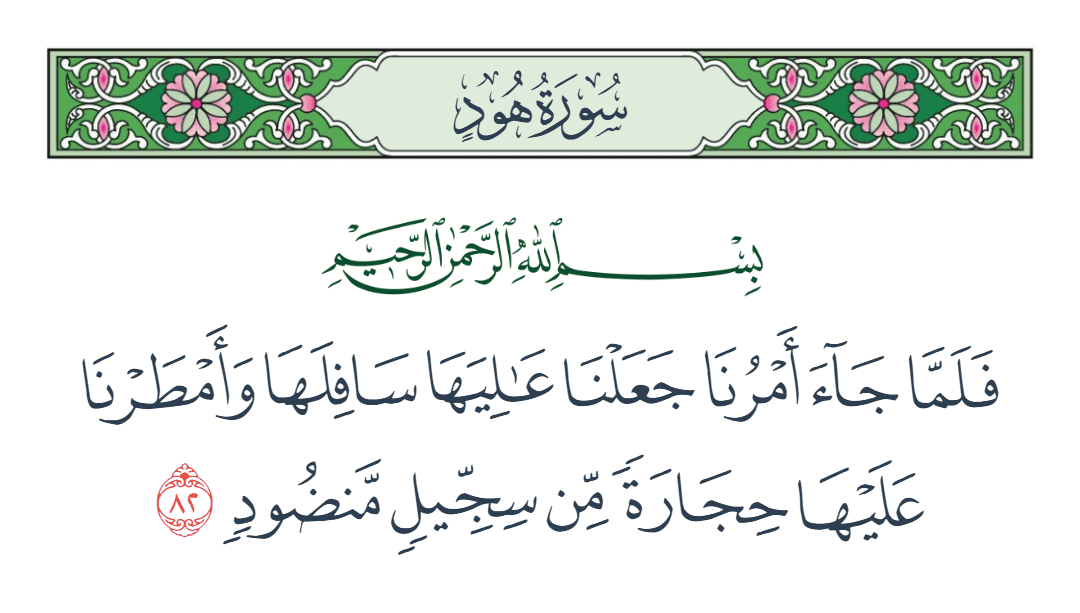 سُورَةُ هُودٍ
بِسْمِ ٱللَّهِ ٱلرَّحْمَٰنِ ٱلرَّحِيمِ
فَلَمَّا جَآءَ أَمْرُنَا جَعَلْنَا عَٰلِيَهَا سَافِلَهَا وَأَمْطَرْنَا
عَلَيْهَا حِجَارَةً مِّن سِجِّيلٍ مَّنضُودٍ ٨٢